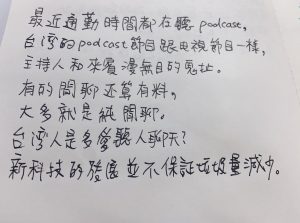 最近通勤時間都在聽 podcast,
台灣的podcast節目跟電視節目一樣,
主持人和來賓漫無目的鬼扯。
有的閒聊還算有料,
大多就是純閒聊。
台灣人是多愛聽人聊天?
新科技的發展並不保証垃圾量減少。